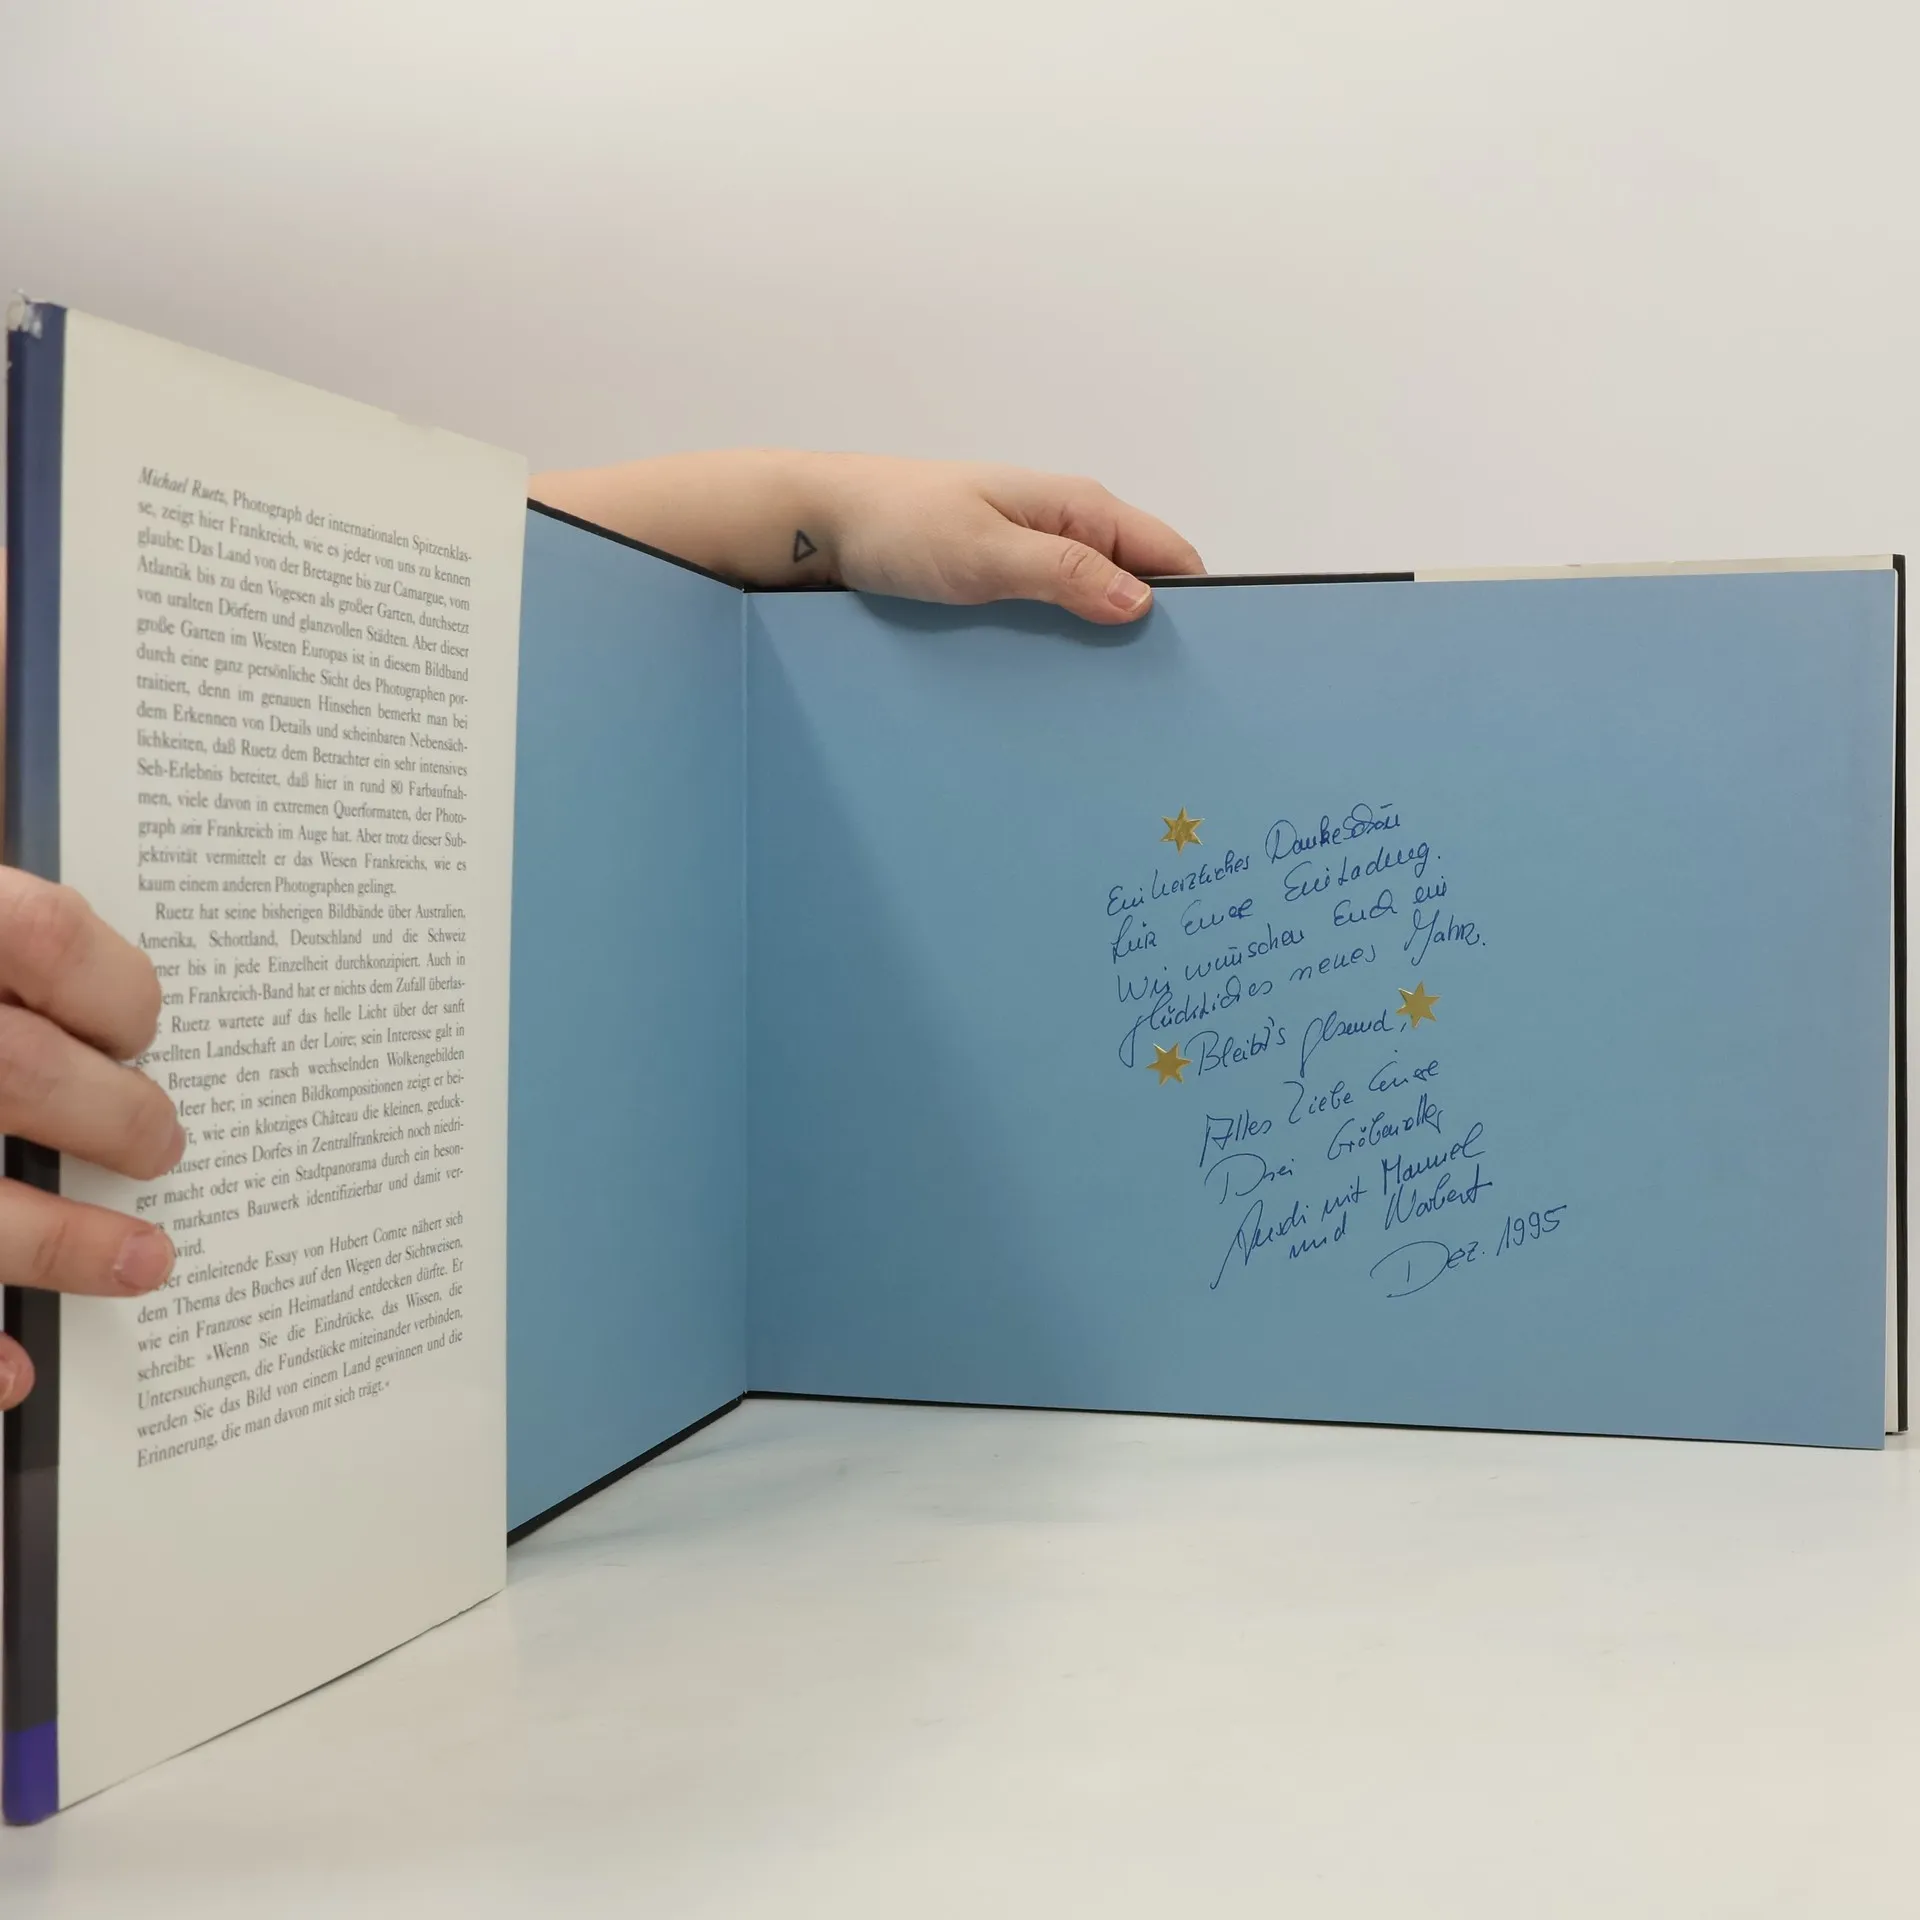 Michael Ruetz, Photograph der internationalen Spitzenklas-
se, zeigt hier Frankreich, wie es jeder von uns zu kennen
glaubt: Das Land von der Bretagne bis zur Camargue, vom
Atlantik bis zu den Vogesen als großer Garten, durchsetzt
von uralten Dörfern und glanzvollen Städten. Aber dieser
große Garten im Westen Europas ist in diesem Bildband
durch eine ganz persönliche Sicht des Photographen por-
traitiert, denn im genauen Hinsehen bemerkt man bei
dem Erkennen von Details und scheinbaren Nebensäch-
lichkeiten, daß Ruetz dem Betrachter ein sehr intensives
Seh-Erlebnis bereitet, daß hier in rund 80 Farbaufnah-
men, viele davon in extremen Querformaten, der Photo-
graph sein Frankreich im Auge hat. Aber trotz dieser Sub-
jektivität vermittelt er das Wesen Frankreichs, wie es
kaum einem anderen Photographen gelingt.
Ruetz hat seine bisherigen Bildbände über Australien,
Amerika, Schottland, Deutschland und die Schweiz
mer bis in jede Einzelheit durchkonzipiert. Auch in
em Frankreich-Band hat er nichts dem Zufall überlas-
: Ruetz wartete auf das helle Licht über der sanft
gewellten Landschaft an der Loire; sein Interesse galt in
Bretagne den rasch wechselnden Wolkengebilden
Meer her; in seinen Bildkompositionen zeigt er bei-
ft, wie ein klotziges Château die kleinen, geduck-
äuser eines Dorfes in Zentralfrankreich noch niedri-
ger macht oder wie ein Stadtpanorama durch ein beson-
s markantes Bauwerk identifizierbar und damit ver-
wird.
Der einleitende Essay von Hubert Comte nähert sich
dem Thema des Buches auf den Wegen der Sichtweisen,
wie ein Franzose sein Heimatland entdecken dürfte. Er
schreibt: »Wenn Sie die Eindrücke, das Wissen, die
Untersuchungen, die Fundstücke miteinander verbinden,
werden Sie das Bild von einem Land gewinnen und die
Erinnerung, die man davon mit sich trägt.«
Ein herzliches Dankeschön
für Eure Einladung.
Wir wünschen Euch ein
glückliches neues Jahr.
Bleibt's gesund,
Alles Liebe Eure
Drei
mit Manuel
und Norbert
Dez. 1995